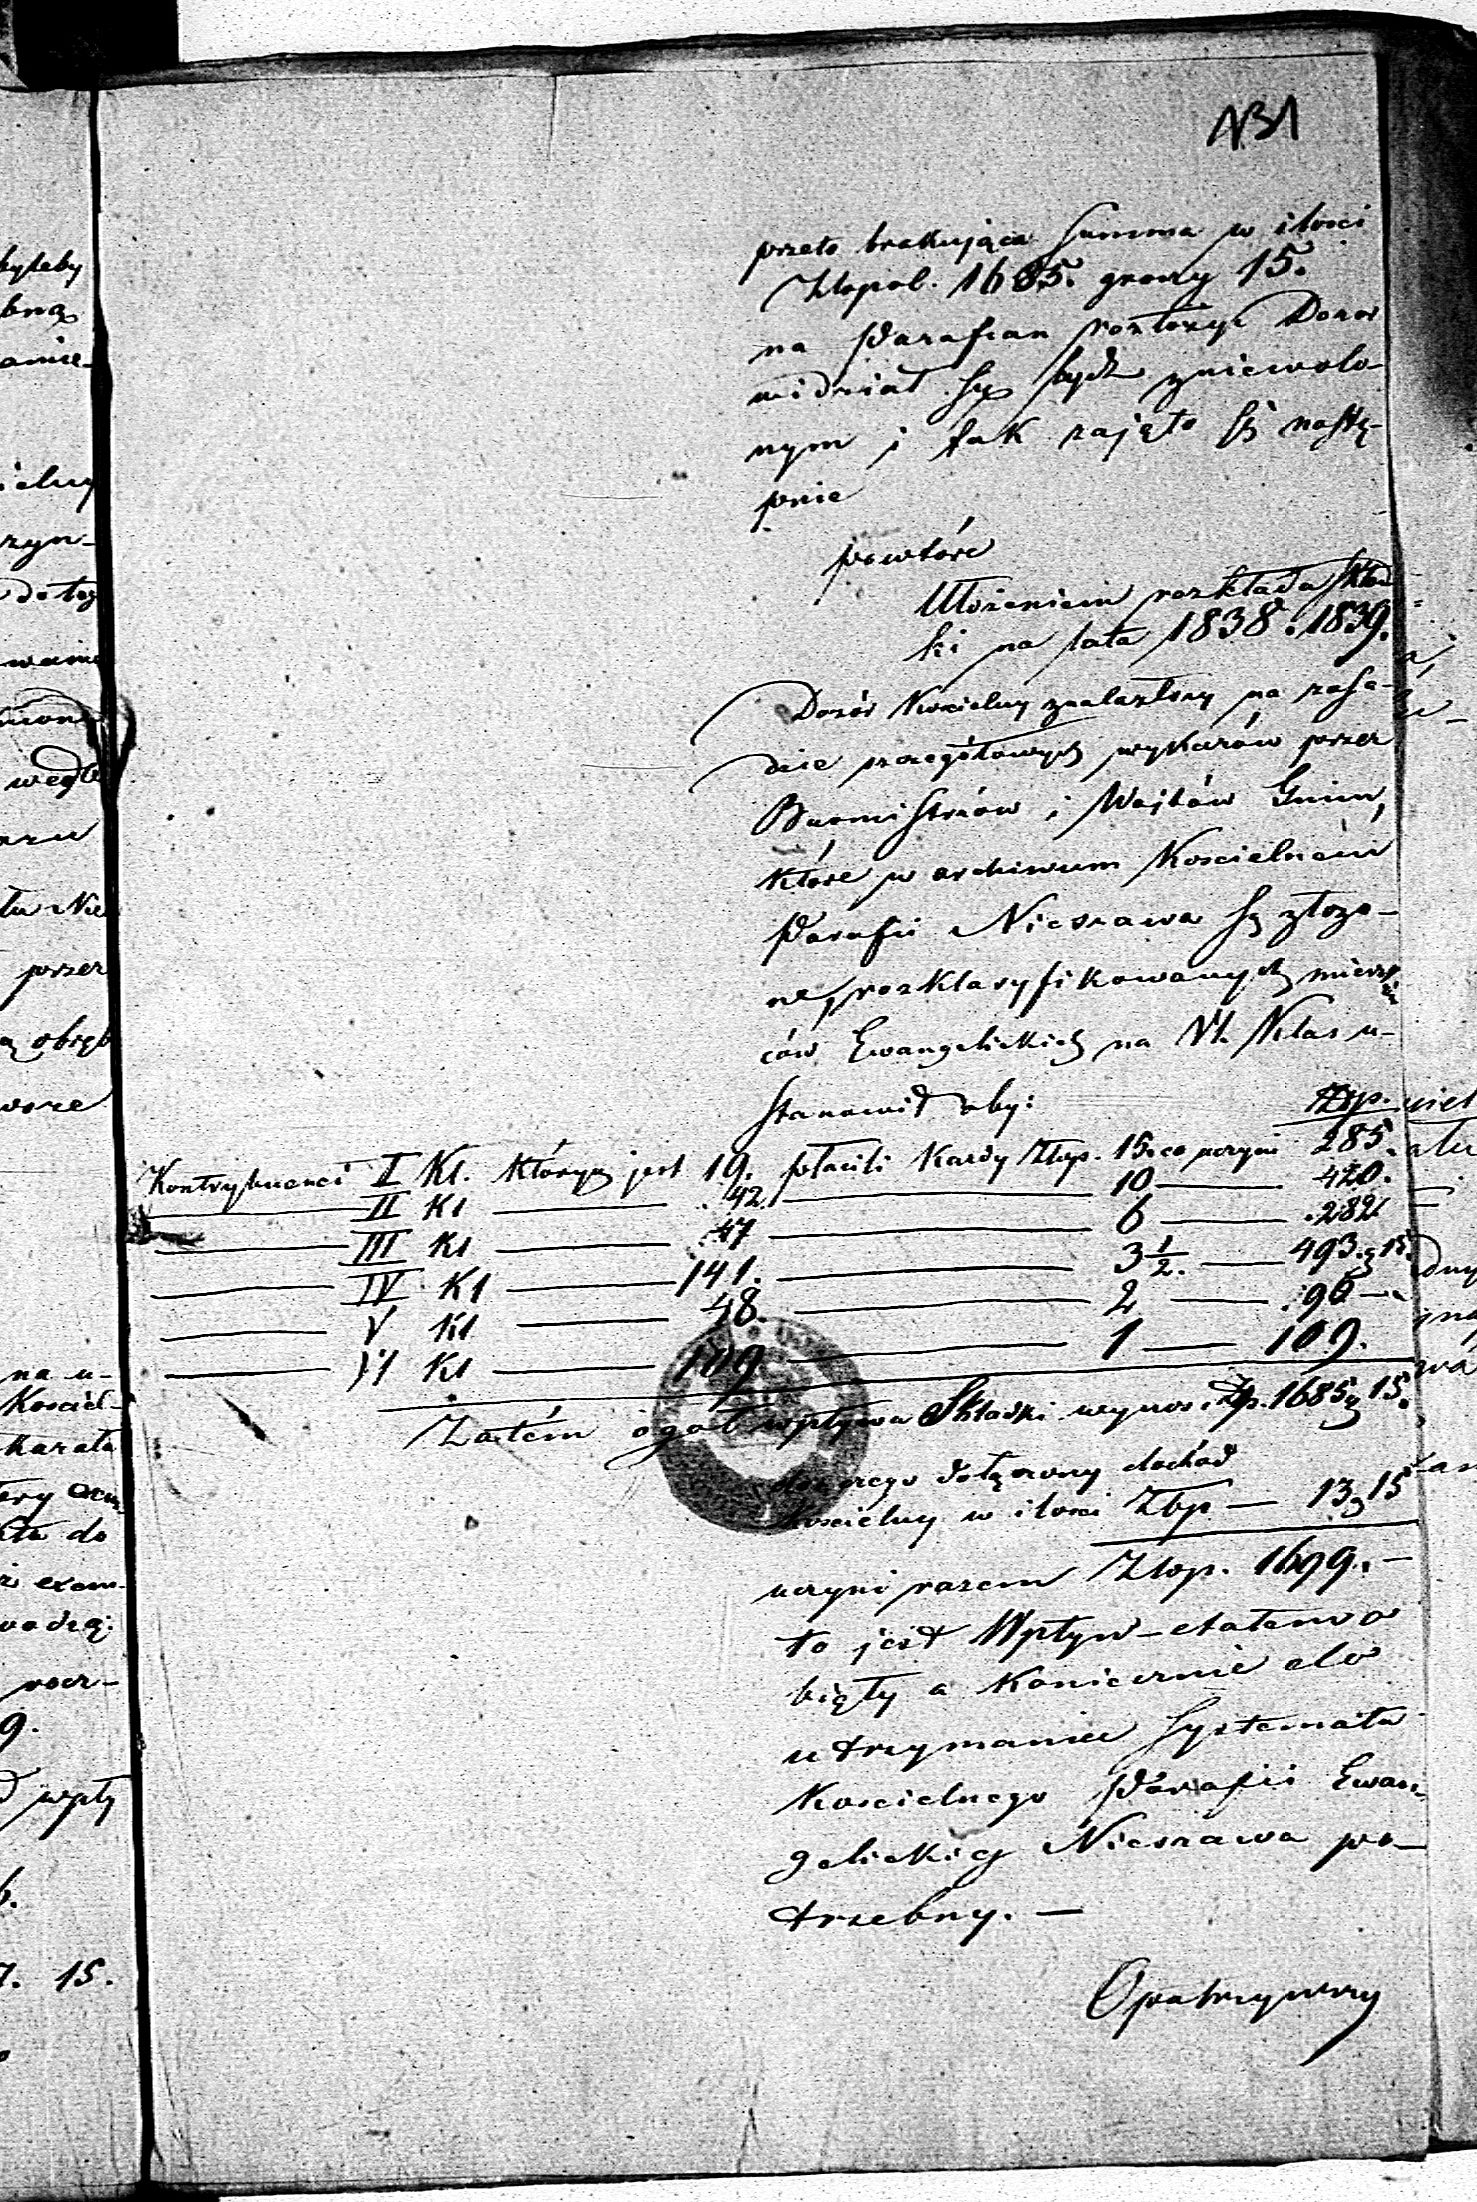 131
przeto brakująca summa w ilości
Złopol. 1685. groszy 15.
na Parafian rozłożyć Dozor
widział się bydź zniewolo-
nym i tak zajęto się nastę-
pnie
powtóre
Ułożeniem rozkładu skład
ki na lata 1838. 1839.
Dozór Kościelny znalazłszy na zasa-
dzie szczegółowych wykazów przez
Burmistrzów i Wojtów Gmin,
które w archiwum Kościelném
Parafii Nieszawa są złożo-
ne, rozklasyfikowanych mieszkań
ców Ewangelickich na VI. Klas u-
stanowił aby: Złtp.
Kontrybuenci I Kl. których jest 19. płacili każdy Złtp. 15. co uczyni 285.
II Kl 42 10 420.
III Kl 47 6 282
IV Kl 141. 3 1/2. 493. g 15.
V Kl 48. 2 96
VI Kl 109 1 109.
Zatém ogół wpływu Składki wynosi Złp. 1685 g 15.
do czego dołączony dochód
Kościelny w ilości Złtp — 13 g 15
uczyni razem Złop. 1699. —
to jest Wpływ etatem o
bięty a koniecznie do
utrzymania systematu
Kościelnego Parafii Ewan-
gelickiej Nieszawa po-
trzebny. —
Opatrzywszy